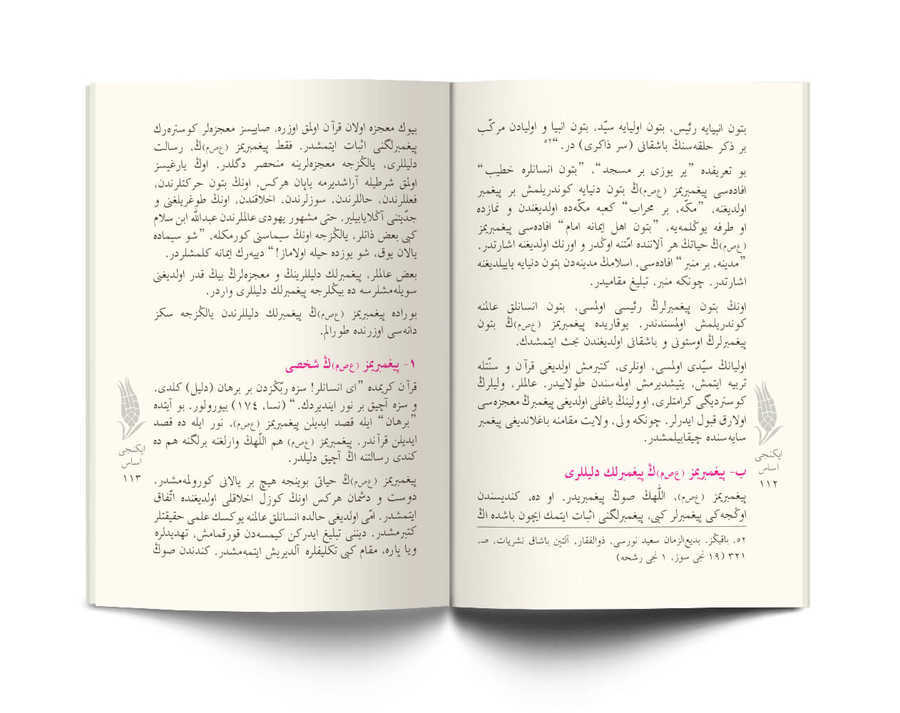 بتون انبيايه رئيس، بتون اوليايه سيّد، بتون انبيا و اوليادن مركّب
بر ذكر حلقه‌سنڭ باشقانى (سر ذاكرى) در. “٥٢
بو تعريفده ”ير يوزى بر مسجد“، ”بتون انسانلره خطيب“
افاده‌سى پيغمبريمز (عصم)ڭ بتون دنيايه كوندريلمش بر پيغمبر
اولديغنه، ”مكّه، بر محراب“ كعبه مكّه‌ده اولديغندن و نمازده
او طرفه يوڭلمه‌يه، ”بتون اهل ايمانه امام“ افاده‌سى پيغمبريمز
(عصم)ڭ حياتنڭ هر آلاننده امّتنه اوڭدر و اورنك اولديغنه اشارتدر.
”مدينه، بر منبر“ افاده‌سى، اسلامڭ مدينه‌دن بتون دنيايه ياييلديغنه
اشارتدر. چونكه منبر، تبليغ مقاميدر.
اونڭ بتون پيغمبرلرڭ رئيسى اولمسى، بتون انسانلق عالمنه
كوندريلمش اولمسندندر. يوقاريده پيغمبريمز (عصم)ڭ بتون
پيغمبرلرڭ اوستونى و باشقانى اولديغندن بحث ايتمشدك.
اوليانڭ سيّدى اولمسى، اونلرى، كتيرمش اولديغى قرآن و سنّتله
تربيه ايتمش، يتيشديرمش اولمه‌سندن طولاييدر. عالملر، وليلرڭ
كوسترديگى كرامتلرى، او ولينڭ باغلى اولديغى پيغمبرڭ معجزه‌سى
اولارق قبول ايدرلر. چونكه ولى، ولايت مقامنه باغلانديغى پيغمبر
سايه‌سنده چيقابيلمشدر.
ب- پيغمبريمز (عصم)ڭ پيغمبرلك دليللرى
پيغمبريمز (عصم)، اللّٰهڭ صوڭ پيغمبريدر. او ده، كنديسندن
اوڭجه‌كى پيغمبرلر كبى، پيغمبرلگنى اثبات ايتمك ايچون باشده اڭ
٥٢. باقيڭز. بديع‌الزمان سعيد نورسى، ذوالفقار، آلتين باشاق نشريات، صـ
٣٢١ (١٩ نجى سوز، ١ نجى رشحه)
ايكنجى
اساس
١١٢
بيوك معجزه اولان قرآن اولمق اوزره، صاييسز معجزه‌لر كوستره‌رك
پيغمبرلگنى اثبات ايتمشدر. فقط پيغمبريمز (عصم)ڭ، رسالت
دليللرى، يالڭزجه معجزه‌لرينه منحصر دگلدر. اوڭ يارغيسز
اولمق شرطيله آراشديرمه ياپان هركس، اونڭ بتون حركتلرندن،
فعللرندن، حاللرندن، سوزلرندن، اخلاقندن، اونڭ طوغريلغنى و
جدّيتنى آڭلايابيلير. حتى مشهور يهودى عالملرندن عبداللّٰه ابن سلام
كبى بعض ذاتلر، يالڭزجه اونڭ سيماسنى كورمكله، ”شو سيماده
يالان يوق، شو يوزده حيله اولاماز!“ دييه‌رك ايمانه كلمشلردر.
بعض عالملر، پيغمبرلك دليللرينڭ و معجزه‌لرڭ بيڭ قدر اولديغنى
سويله‌مشلرسه ده بيڭلرجه پيغمبرلك دليللرى واردر.
بوراده پيغمبريمز (عصم)ڭ پيغمبرلك دليللرندن يالڭزجه سكز
دانه‌سى اوزرنده طورالم.
١- پيغمبريمز (عصم)ڭ شخصى
قرآن كريمده ”اى انسانلر! سزه ربّڭزدن بر برهان (دليل) كلدى.
و سزه آچيق بر نور اينديردك.“ (نسا، ١٧٤) بيورولور. بو آيتده
”برهان“ ايله قصد ايديلن پيغمبريمز (عصم)، نور ايله ده قصد
ايديلن قرآندر. پيغمبريمز (عصم) هم اللّٰهڭ وارلغنه برلگنه هم ده
كندى رسالتنه اڭ آچيق دليلدر.
پيغمبريمز (عصم)ڭ حياتى بوينجه هيچ بر يالانى كورولمه‌مشدر.
دوست و دشمان هركس اونڭ كوزل اخلاقلى اولديغنده اتّفاق
ايتمشدر. امّى اولديغى حالده انسانلق عالمنه يوكسك علمى حقيقتلر
كتيرمشدر. ديننى تبليغ ايدركن كيمسه‌دن قورقمامش، تهديدلره
ويا پاره، مقام كبى تكليفلره آلديريش ايتمه‌مشدر. كندندن صوڭ
ايكنجى
اساس
١١٣